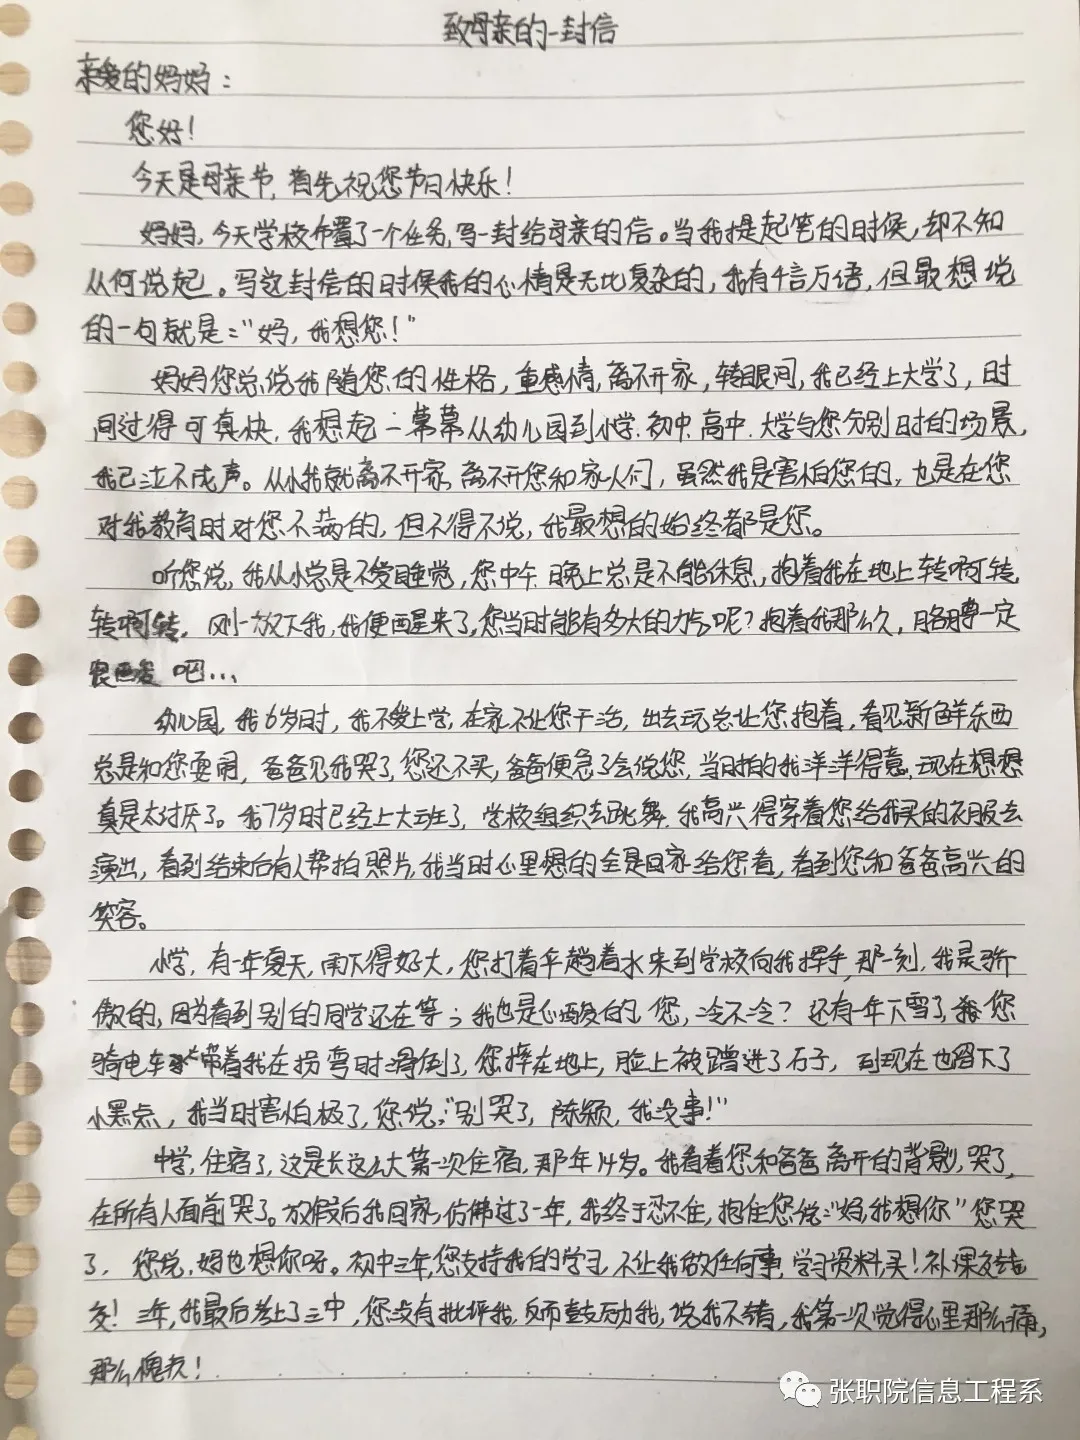 致母亲的一封信
亲爱的妈妈：
您好！
今天是母亲节，首先祝您节日快乐！
妈妈，今天学校布置了一个任务，写一封给母亲的信。当我提起笔的时候，却不知
从何说起。写这封信的时候我的心情是无比复杂的，我有千言万语，但最想说
的一句就是：“妈，我想您！”
妈妈您总说我随您的性格，重感情，离不开家，转眼间，我已经上大学了，时
间过得可真快，我想起一幕幕从幼儿园到小学、初中、高中、大学与您分别时的场景，
我已泣不成声。从小我就离不开家，离不开您和家人们，虽然我是害怕您的，也是在您
对我教育时对您不满的，但不得不说，我最想的始终都是您。
听您说，我从小总是不爱睡觉，您中午、晚上总是不能休息，抱着我在地上转啊转，
转啊转，刚一放下我，我便醒来了，您当时能有多大的力气呢？抱着我那么久，胳膊一定
很 吧...
幼儿园，我6岁时，我不爱上学，在家不让您干活，出去玩总让您抱着，看见新鲜东西
总是和您耍闹，爸爸见我哭了，您还不买，爸爸便急了会说您，当时的我洋洋得意，现在想想
真是太讨厌了。我7岁时已经上大班了，学校组织去跳舞，我高兴得穿着您给我买的衣服去
演出，看到结束后有人帮拍照片，我当时心里想的全是回家给您看，看到您和爸爸高兴的
笑容。
小学，有一年夏天，雨下得好大，您打着伞趟着水来到学校向我挥手，那一刻，我是骄
傲的，因为看到别的同学还在等；我也是心酸的，您，冷不冷？还有一年下雪了，您
骑电车带着我在拐弯时滑倒了，您摔在地上，脸上被蹭进了石子，到现在也留下了
小黑点，我当时害怕极了，您说：“别哭了，陈颖，我没事！”
中学，住宿了，这是长这么大第一次住宿，那年14岁。我看着您和爸爸离开的背影，哭了，
在所有人面前哭了。放假后我回家，仿佛过了一年，我终于忍不住，抱住您说：“妈，我想你”您哭
了，您说，妈也想你呀。初中三年，您支持我的学习，不让我做任何事，学习资料，买！补课
交！三年，我最后考上了三中，您没有批评我，反而鼓励我，说我不错，我第一次觉得心里那么痛，
那么愧疚！
张职院信息工程系